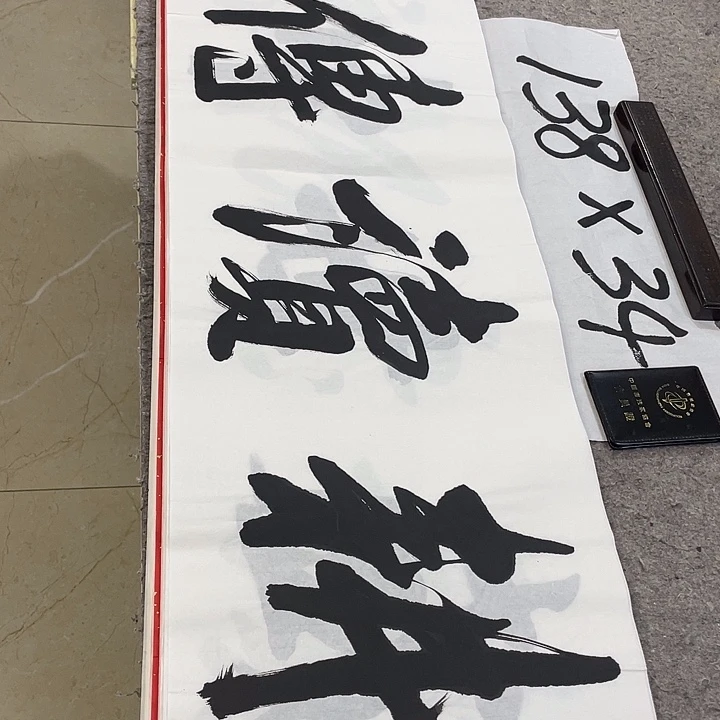 耕讀傳
138 x 34